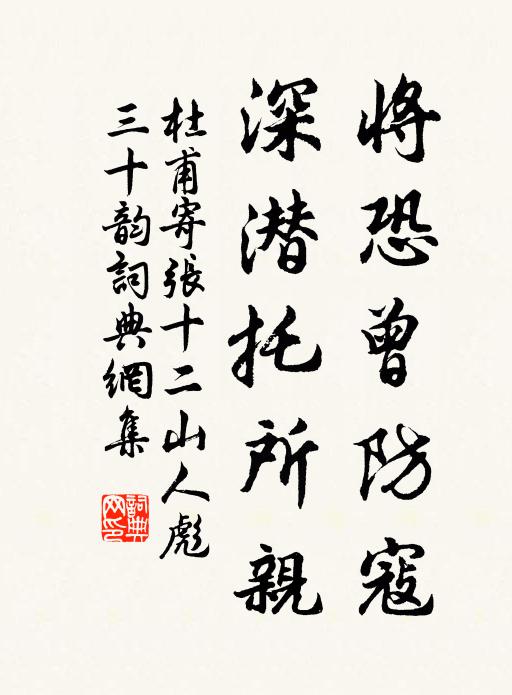 将恐曾防寇
深潜托所親
杜甫寄張十二山人彪
三十韵詞典網集
詞典网印